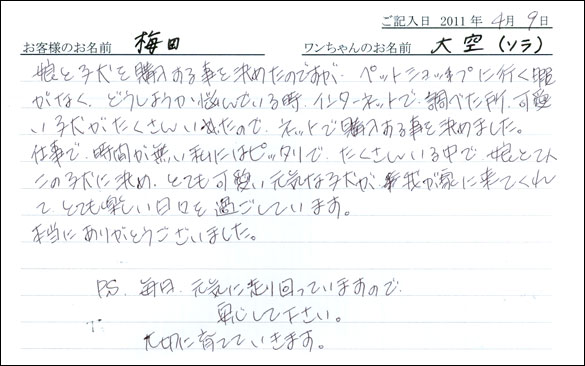 ご記入日 2011 年 4月 9日
お客様のお名前 梅田 ワンちゃんのお名前 大空(ソラ)
娘と子犬を購入する事を決めたのですが、ペットショップに行く暇
がなく、どうしようか悩んでいる時、インターネットで調べた所、可愛
い子犬がたくさんいたので、ネットで購入する事を決めました。
仕事で、時間が無い私にはピッタリで、たくさんいる中で、娘と二人
この子犬に決め、とても可愛い元気な子犬が、我が家に来てくれ
て、とても楽しい日々を過ごしています。
本当にありがとうございました。
PS. 毎日、元気に走り回っていますので、
安心して下さい。
大切に育てていきます。